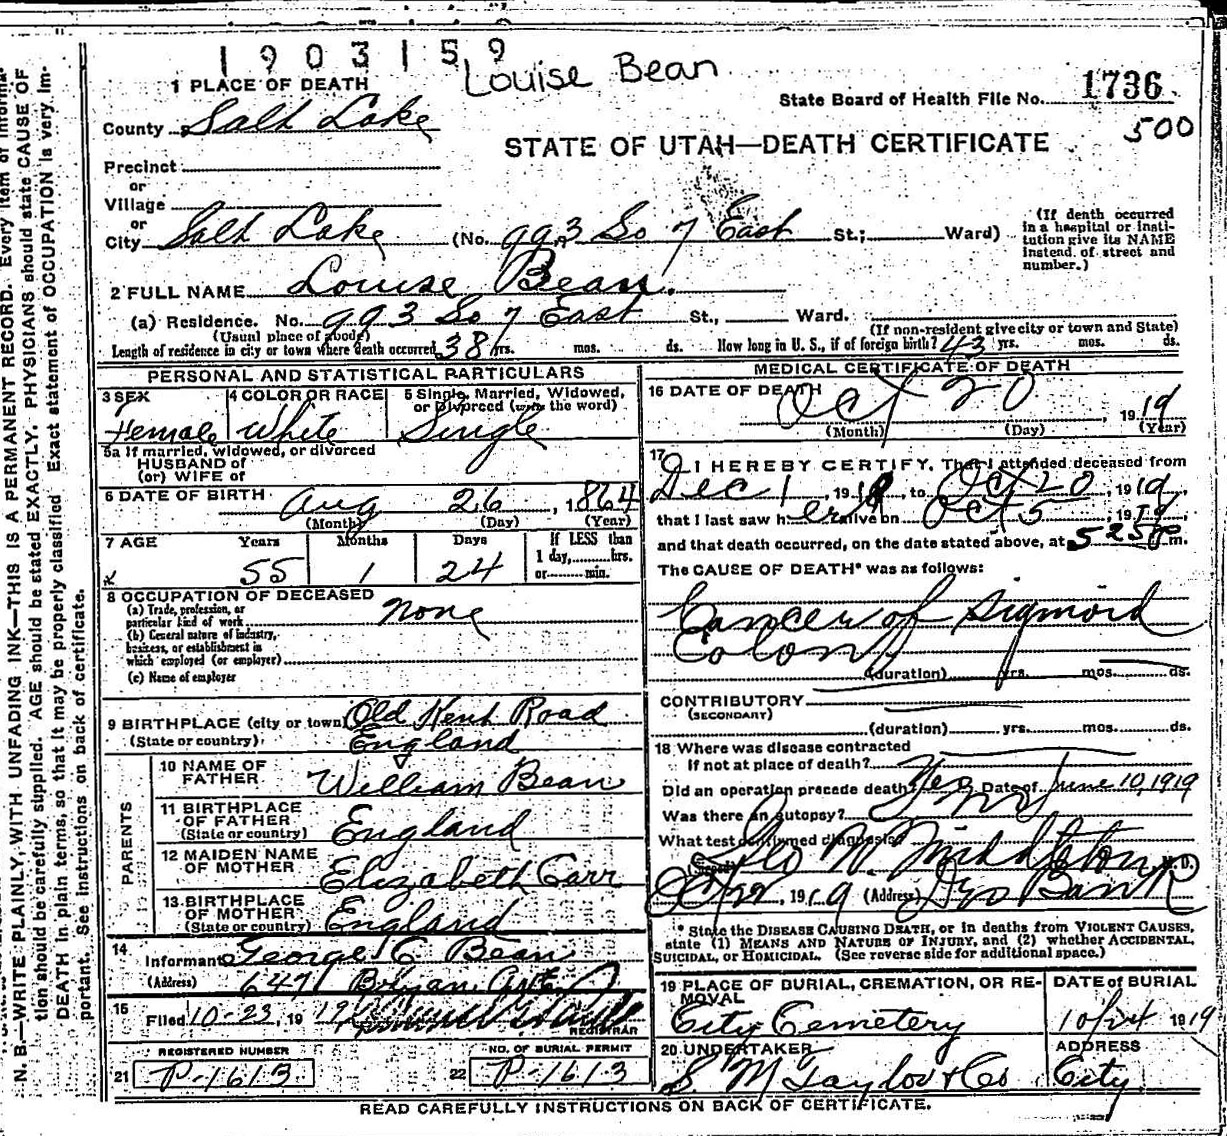 1903159
Louise Bean
1 PLACE OF DEATH
State Board of Health File No. 1736
500
County Salt Lake
STATE OF UTAH—DEATH CERTIFICATE
Precinct
or
Village
or
City Salt Lake (No. 993 So 7 East St.; Ward)
(If death occurred in a hospital or institution give its NAME instead of street and number.)
2 FULL NAME Louise Bean.
(a) Residence. No. 993 So 7 East St., Ward.
(Usual place of abode) (If non-resident give city or town and State)
Length of residence in city or town where death occurred 38 yrs. mos. ds. How long in U. S., if of foreign birth? 43 yrs. mos. ds.
PERSONAL AND STATISTICAL PARTICULARS
3 SEX 4 COLOR OR RACE 5 Single, Married, Widowed, or Divorced (write the word)
Female White Single
5a If married, widowed, or divorced
HUSBAND of
(or) WIFE of
6 DATE OF BIRTH Aug 26, 1864
(Month) (Day) (Year)
7 AGE Years Months Days If LESS than 1 day, hrs. or min.
55 1 24
8 OCCUPATION OF DECEASED
(a) Trade, profession, or particular kind of work None
(b) General nature of industry, business, or establishment in which employed (or employer)
(c) Name of employer
9 BIRTHPLACE (city or town) Old Kent Road
(State or country) England
PARENTS
10 NAME OF FATHER William Bean
11 BIRTHPLACE OF FATHER (State or country) England
12 MAIDEN NAME OF MOTHER Elizabeth Carr
13 BIRTHPLACE OF MOTHER (State or country) England
14 Informant George C Bean
(Address) 647 Bryan Ave
15 Filed 10-23, 1919
REGISTRAR
REGISTERED NUMBER NO. OF BURIAL PERMIT
21 P-1613 22 P-1613
MEDICAL CERTIFICATE OF DEATH
16 DATE OF DEATH Oct 20, 1919
(Month) (Day) (Year)
17 I HEREBY CERTIFY, That I attended deceased from
Dec 1, 1918, to Oct 20, 1919,
that I last saw her alive on Oct 5, 1919,
and that death occurred, on the date stated above, at 5 25 P m.
The CAUSE OF DEATH* was as follows:
Cancer of Sigmoid
Colon
(duration) yrs. mos. ds.
CONTRIBUTORY
(SECONDARY)
(duration) yrs. mos. ds.
18 Where was disease contracted
If not at place of death?
Did an operation precede death? Yes Date of June 10, 1919
Was there an autopsy? No
What test confirmed diagnosis?
(Signed) Geo W. Middleton M. D.
Oct 22, 1919 (Address) Des Bank
* State the DISEASE CAUSING DEATH, or in deaths from VIOLENT CAUSES, state (1) MEANS AND NATURE OF INJURY, and (2) whether ACCIDENTAL, SUICIDAL, or HOMICIDAL. (See reverse side for additional space.)
19 PLACE OF BURIAL, CREMATION, OR REMOVAL DATE OF BURIAL
City Cemetery 10/24 1919
20 UNDERTAKER ADDRESS
S. M Taylor & Co City
READ CAREFULLY INSTRUCTIONS ON BACK OF CERTIFICATE.
N. B.—WRITE PLAINLY, WITH UNFADING INK—THIS IS A PERMANENT RECORD. Every item of information should be carefully supplied. AGE should be stated EXACTLY. PHYSICIANS should state CAUSE OF DEATH in plain terms, so that it may be properly classified. Exact statement of OCCUPATION is very important. See instructions on back of certificate.